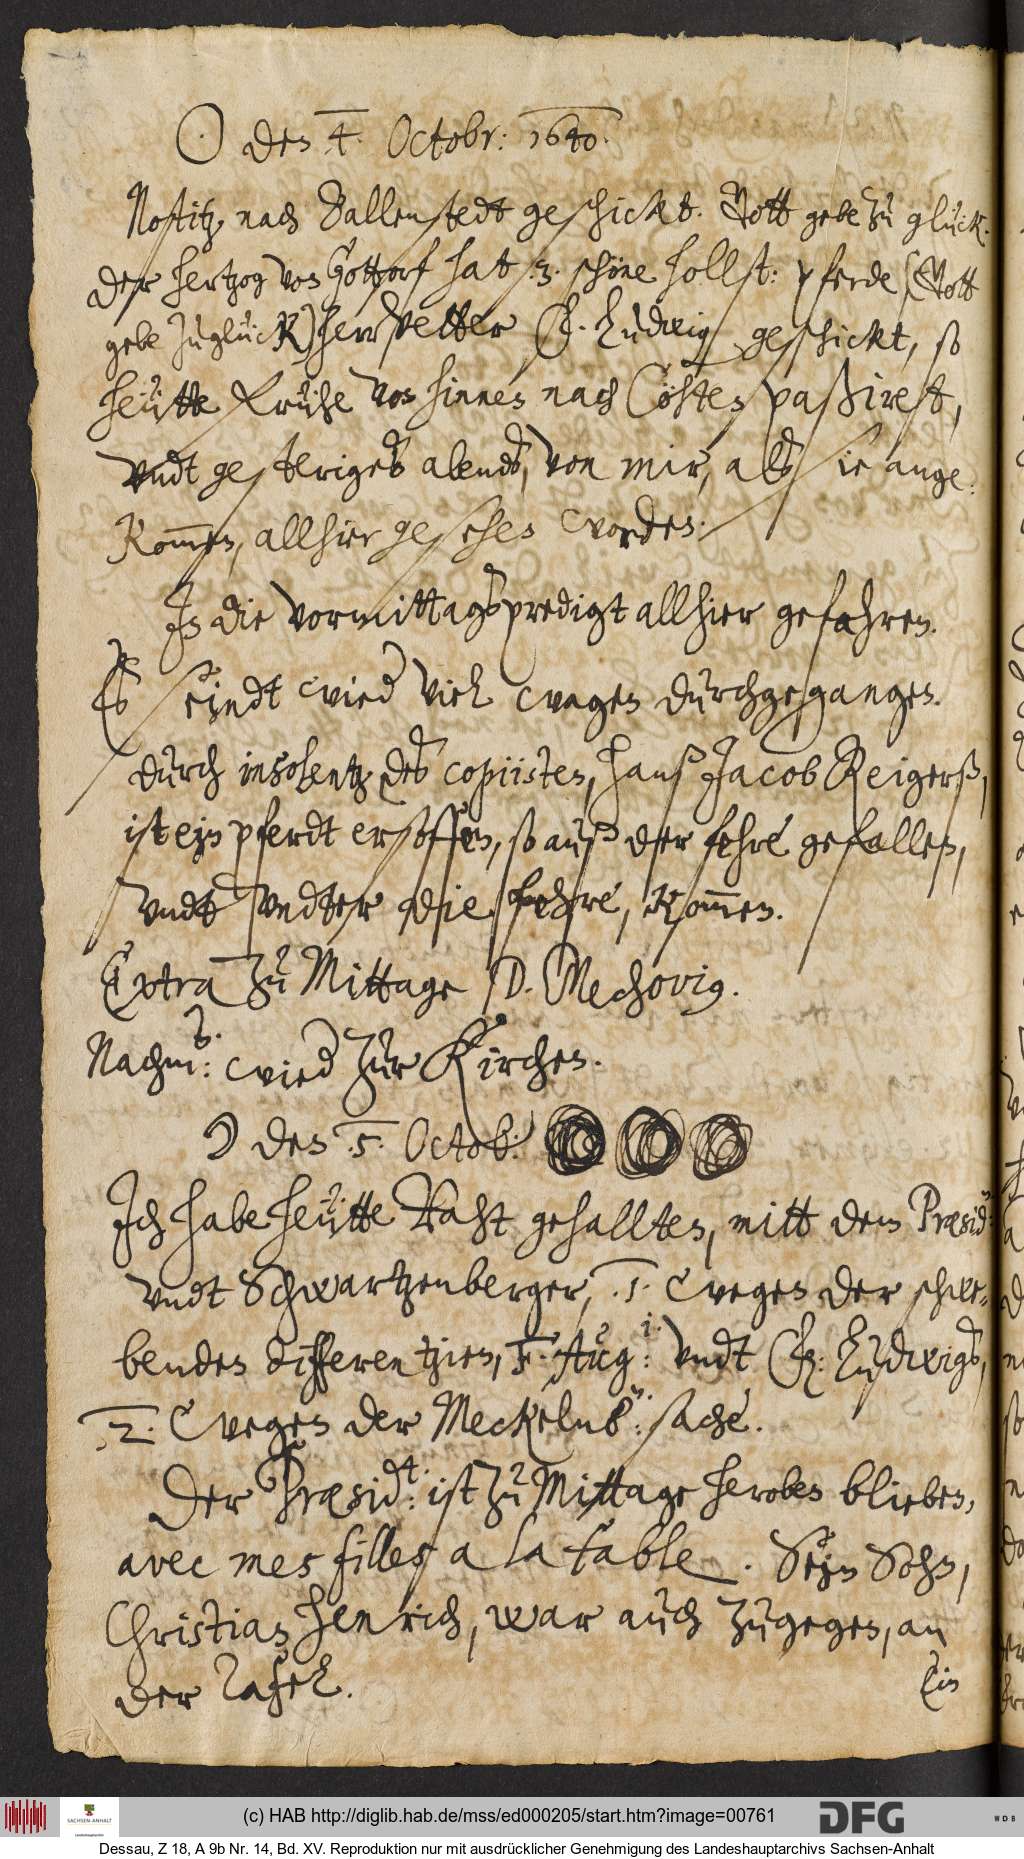 ☉ den 4. Octobr: 1640.
Nostitz, nach Ballenstedt geschickt. Gott gebe zu glück.
Der hertzog von Gottorf hat .3. schöne hollst: pferde (Gott
gebe zu glück) herrvetter F. Ludwig geschickt, so
heütte frühe von hinnen nach Cöhten paßiret,
vndt gesteriges abends, von mir, als sie ange-
kom̅en, allhier gesehen worden.
In die vormittagspredigt allhier gefahren.
Es seindt wied viel wagen durchgegangen.
Durch insolentz des copiisten, hanß Jacob Reigerß,
ist ein pferdt ersoffen, so auß der fehre gefallen,
vndt vndter die fehre, kom̅en.
Extra zu Mittage D. Mechovig.
Nachm:s wied zur Kirchen.
☽ den .5. Octob:
Ich habe heütte Raht gehallten, mitt dem Præsid:n
vndt Schwartzenberger, .1. wegen der schwe-
benden differentzien, F. Aug:i vndt F: Ludwigs,
.2. Wegen der Meckelnb:n sache.
Der Præsid:t ist zu Mittage heroben blieben,
avec mes filles a la table. Sein Sohn,
Christian henrich, war auch zugegen, an
der Tafel.
Ein
(c) HAB http://diglib.hab.de/mss/ed000205/start.htm?image=00761
SACHSEN-ANHALT
DFG
WDB
Dessau, Z 18, A 9b Nr. 14, Bd. XV. Reproduktion nur mit ausdrücklicher Genehmigung des Landeshauptarchivs Sachsen-Anhalt